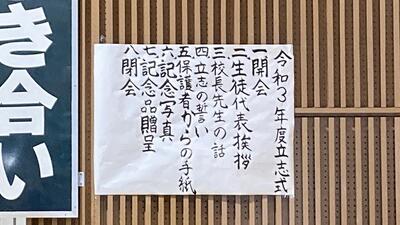 令和3年度立志式
一開会
二生徒代表挨拶
三校長先生の話
四立志の誓い
五保護者からの手紙
六記念写真
七記念品贈呈
八閉会
き合い